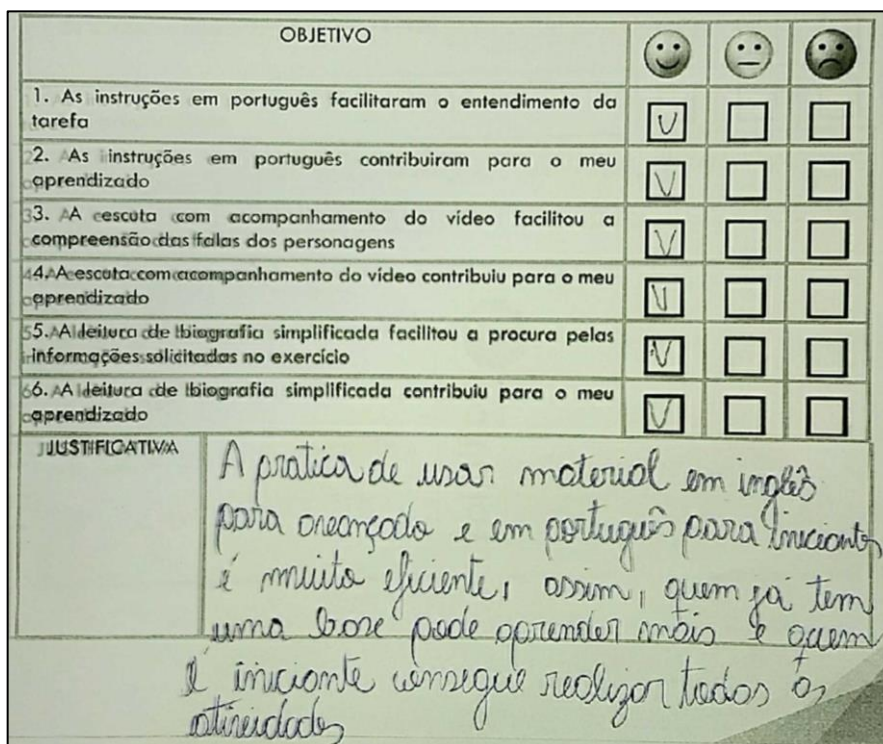 OBJETIVO
1. As instruções em português facilitaram o entendimento da
tarefa
2. As instruções em português contribuiram para o meu
aprendizado
3. A escuta com acompanhamento do vídeo facilitou a
compreensão das falas dos personagens
4. A escuta com acompanhamento do vídeo contribuiu para o meu
aprendizado
5. A leitura de biografia simplificada facilitou a procura pelas
informações solicitadas no exercício
6. A leitura de biografia simplificada contribuiu para o meu
aprendizado
JUSTIFICATIVA
A pratica de usar material em inglês
para avançado e em português para iniciantes
é muito eficiente, assim, quem já tem
uma base pode aprender mais e quem
é iniciante consegue realizar todas as
atividades